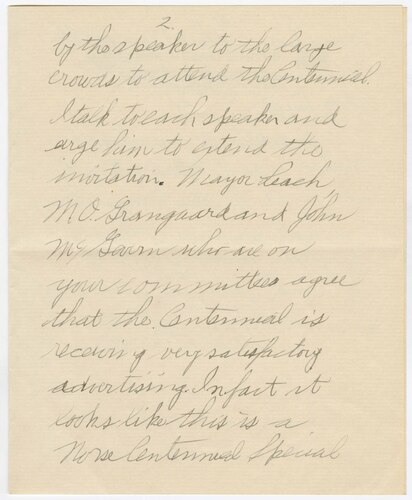 2
by the speaker to the large
crowds to attend the Centennial.
I talk to each speaker and
urge him to extend the
invitation. Mayor Leach
M.O. Grangaard and John
McGovern who are on
your committees agree
that the Centennial is
receiving very satisfactory
advertising. Infact it
looks like this is a
Norse Centennial Special